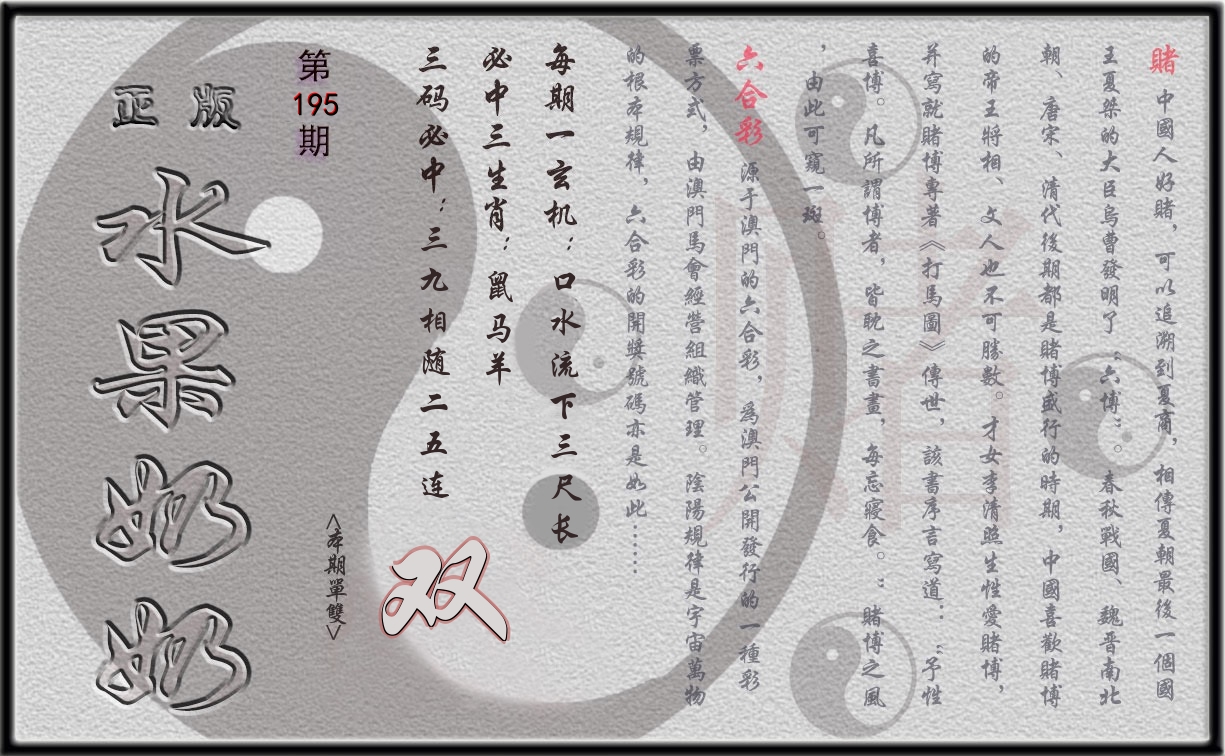 賭 中國人好賭，可以追溯到夏商，相傳夏朝最後一個國
王夏桀的大臣烏曹發明了“六博”。春秋戰國、魏晋南北
朝、唐宋、清代後期都是賭博盛行的時期，中國喜歡賭博
的帝王將相、文人也不可勝數。才女李清照生性愛賭博，
并寫就賭博專著《打馬圖》傳世，該書序言寫道：“予性
喜博。凡所謂博者，皆耽之書畫，每忘寢食。：賭博之風
，由此可窺一斑。
六合彩 源于澳門的六合彩，為澳門公開發行的一種彩
票方式，由澳門馬會經營組織管理。陰陽規律是宇宙萬物
的根本規律，六合彩的開獎號碼亦是如此······
每期一玄机：口水流下三尺长
必中三生肖：鼠马羊
三码必中：三九相随二五连
双
<本期單雙>
第
195
期
正版
水果奶奶
賭